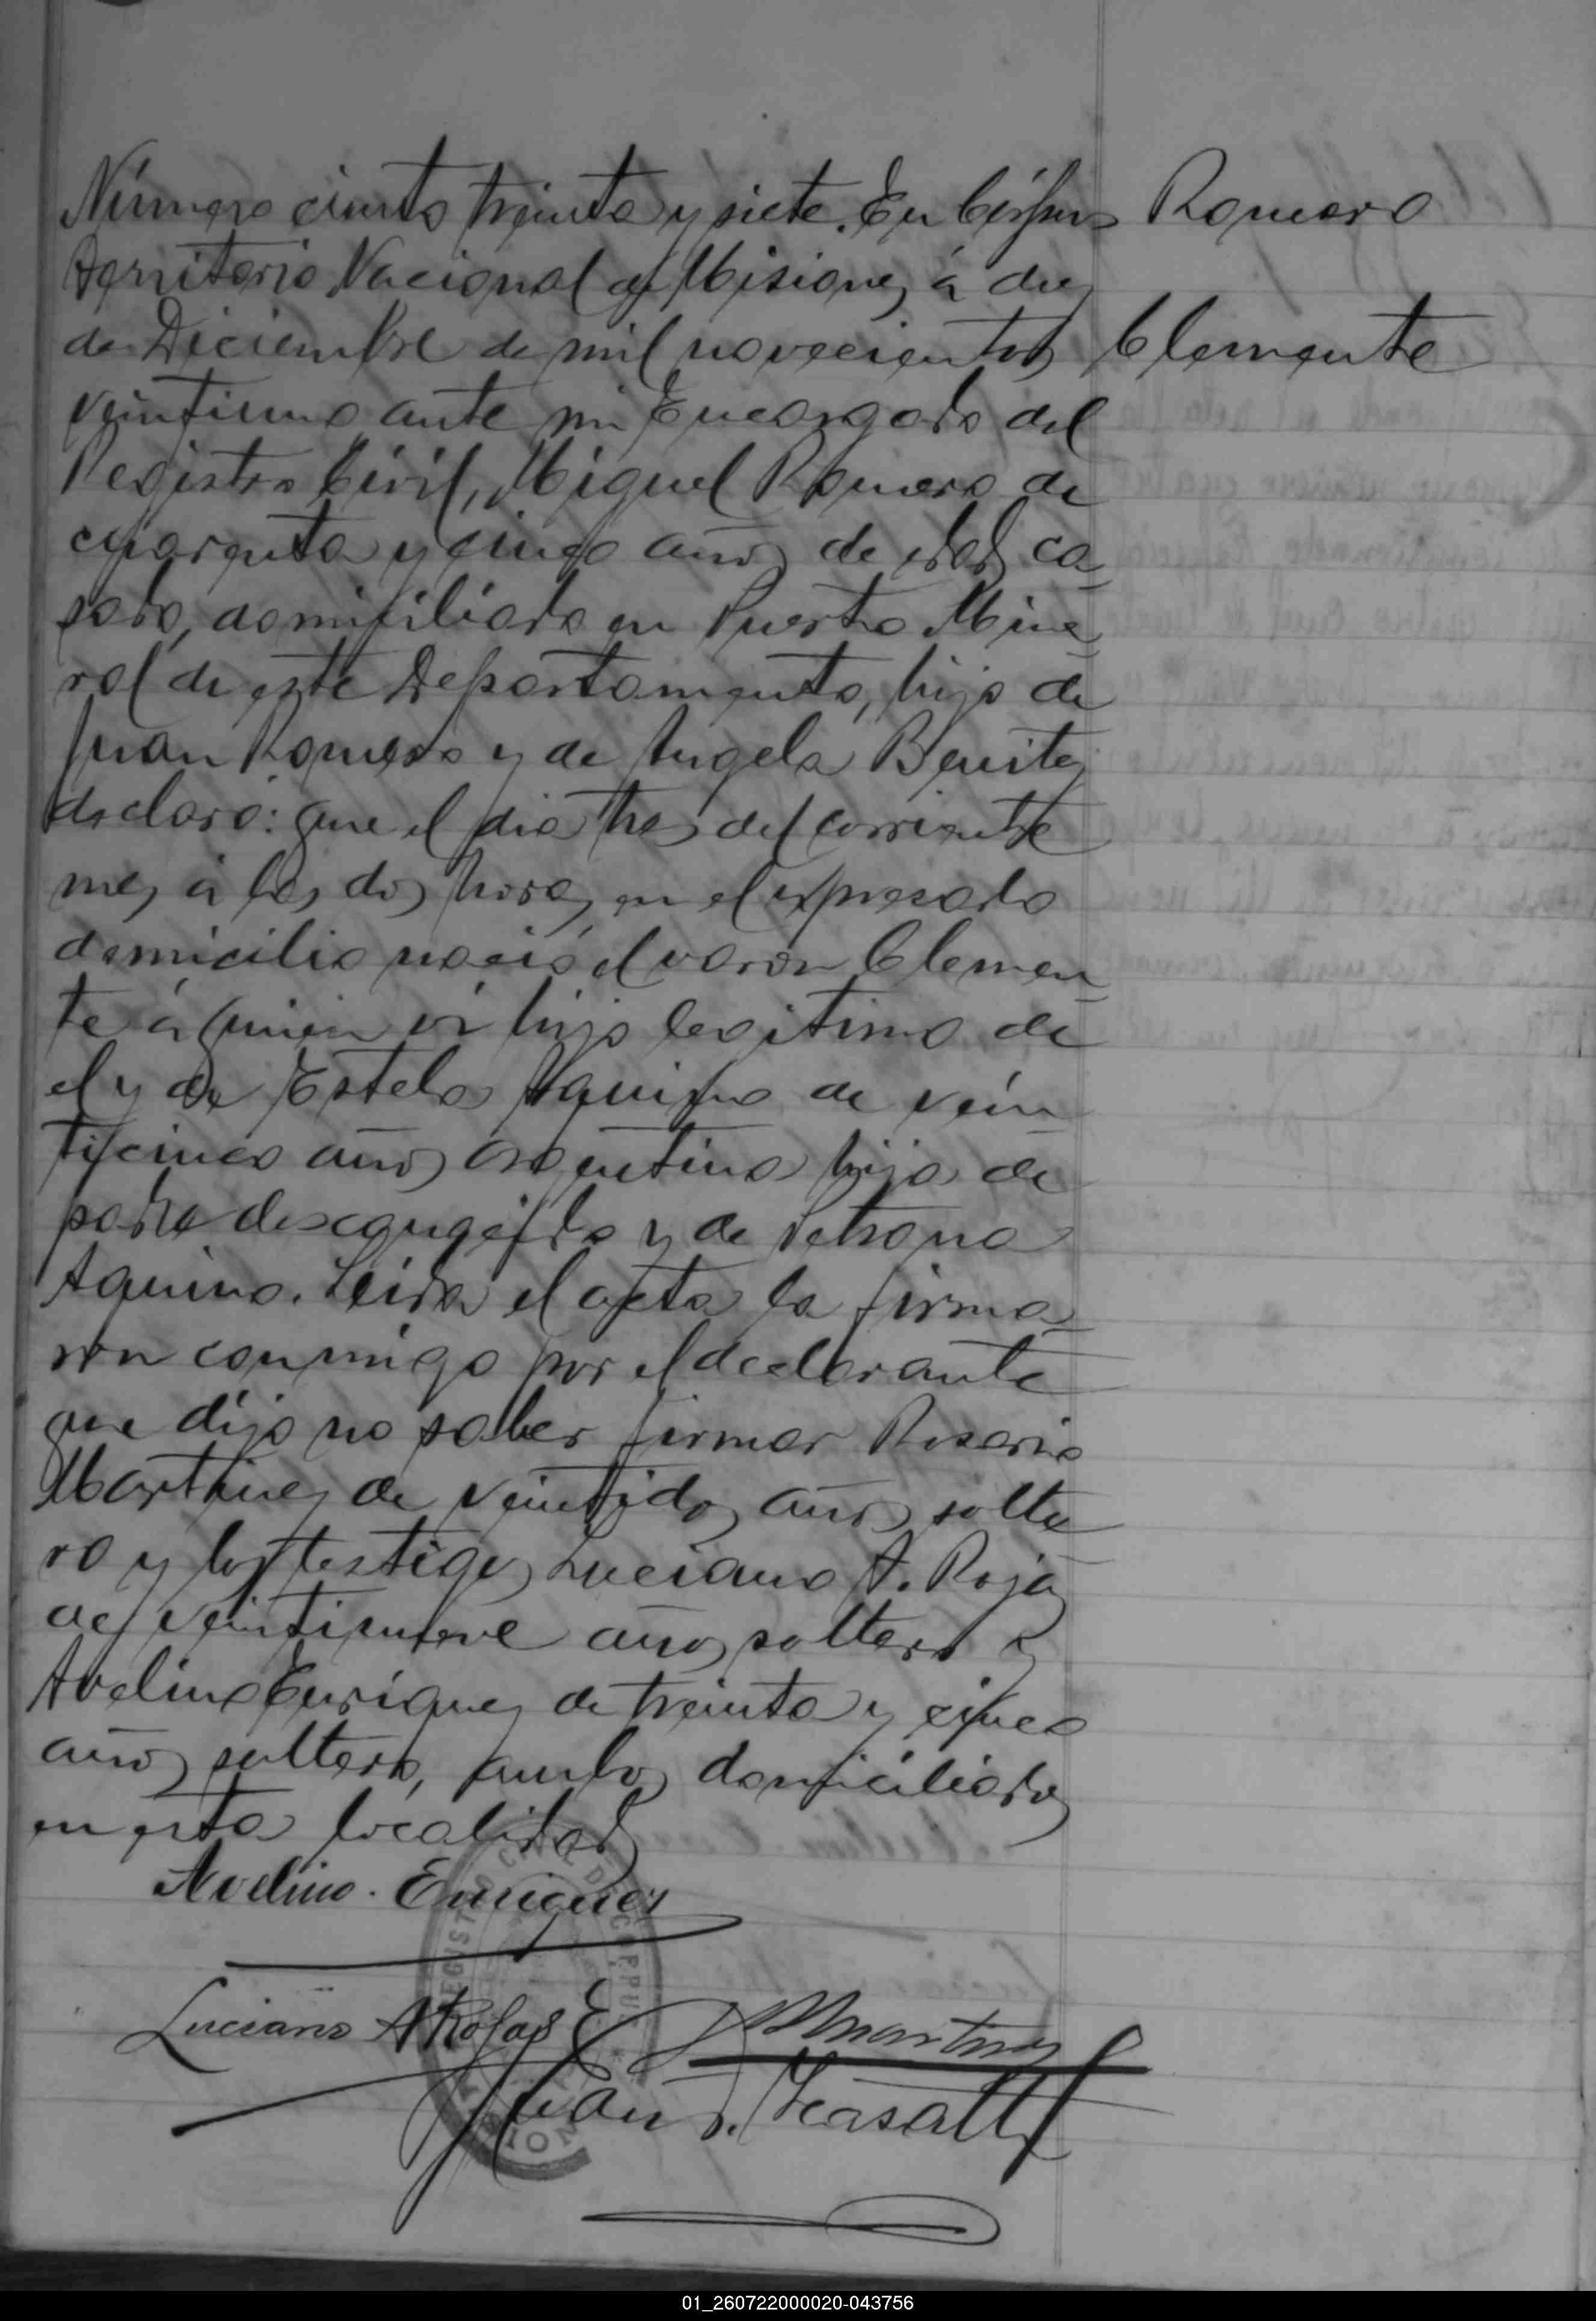 Número ciento treinta y siete. En Córpus
Romero
Territorio Nacional de Misiones, á diez
de Diciembre de mil novecientos
Clemente
veintiuno ante mi Encargado del
Registro Civil, Miguel Romero de
cuarenta y cinco años de edad ca-
sado, domiciliado en Puerto Mine-
ral de este Departamento, hijo de
Juan Romero y de Angela Benitez
declaró: que el dia tres del corriente
mes á las dos horas, en el expresado
domicilio nació el varon Clemen-
te á quien ví hijo legitimo de
el y de Estela Aquino de vein-
ticinco años argentina hija de
padre desconocido y de Petrona
Aquino. Leida el acta la firma-
ron conmigo por el declarante
que dijo no saber firmar Rosario
Martinez de veintidos años solte-
ro y los testigos Luciano A. Rojas
de veintinueve años soltero y
Avelino Enriquez de treinta y cinco
años soltero, ambos domiciliados
en esta localidad
Avelino Enriquez
Luciano A Rojas
Martinez
Juan
REGISTRO CIVIL DE CORPUS
01_260722000020-043756